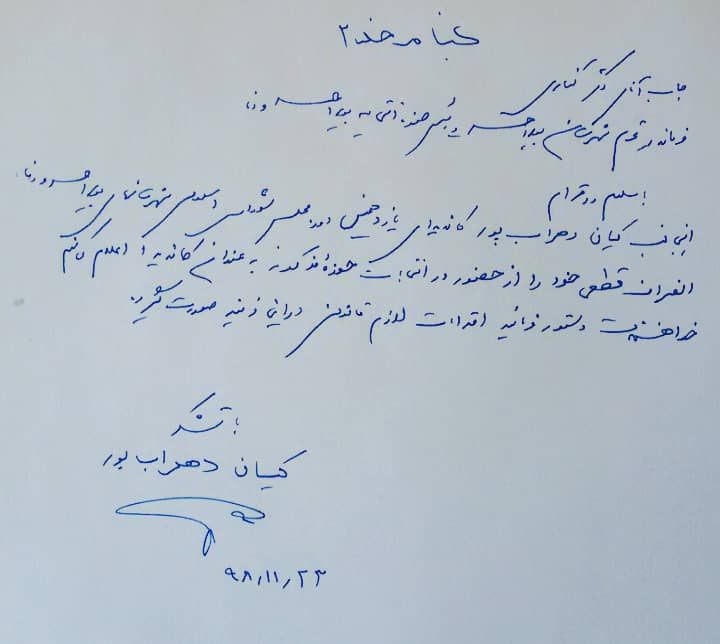 بنام خدا
جناب آقای دکتر
فرماندار محترم شهرستان بویراحمد و رئیس حوزه انتخابیه بویراحمد و دنا
با سلام و احترام
اینجانب کیان دهراب پور کاندیدای یازدهمین دوره مجلس شورای اسلامی شهرستانهای بویراحمد و دنا
انصراف قطعی خود را از حضور در انتخابات حوزه مذکور به عنوان کاندیدا اعلام می‌کنم
خواهشمند است دستور فرمائید اقدامات لازم قانونی در این زمینه صورت گیرد.
با تشکر
کیان دهراب پور
۹۸/۱۱/۲۳